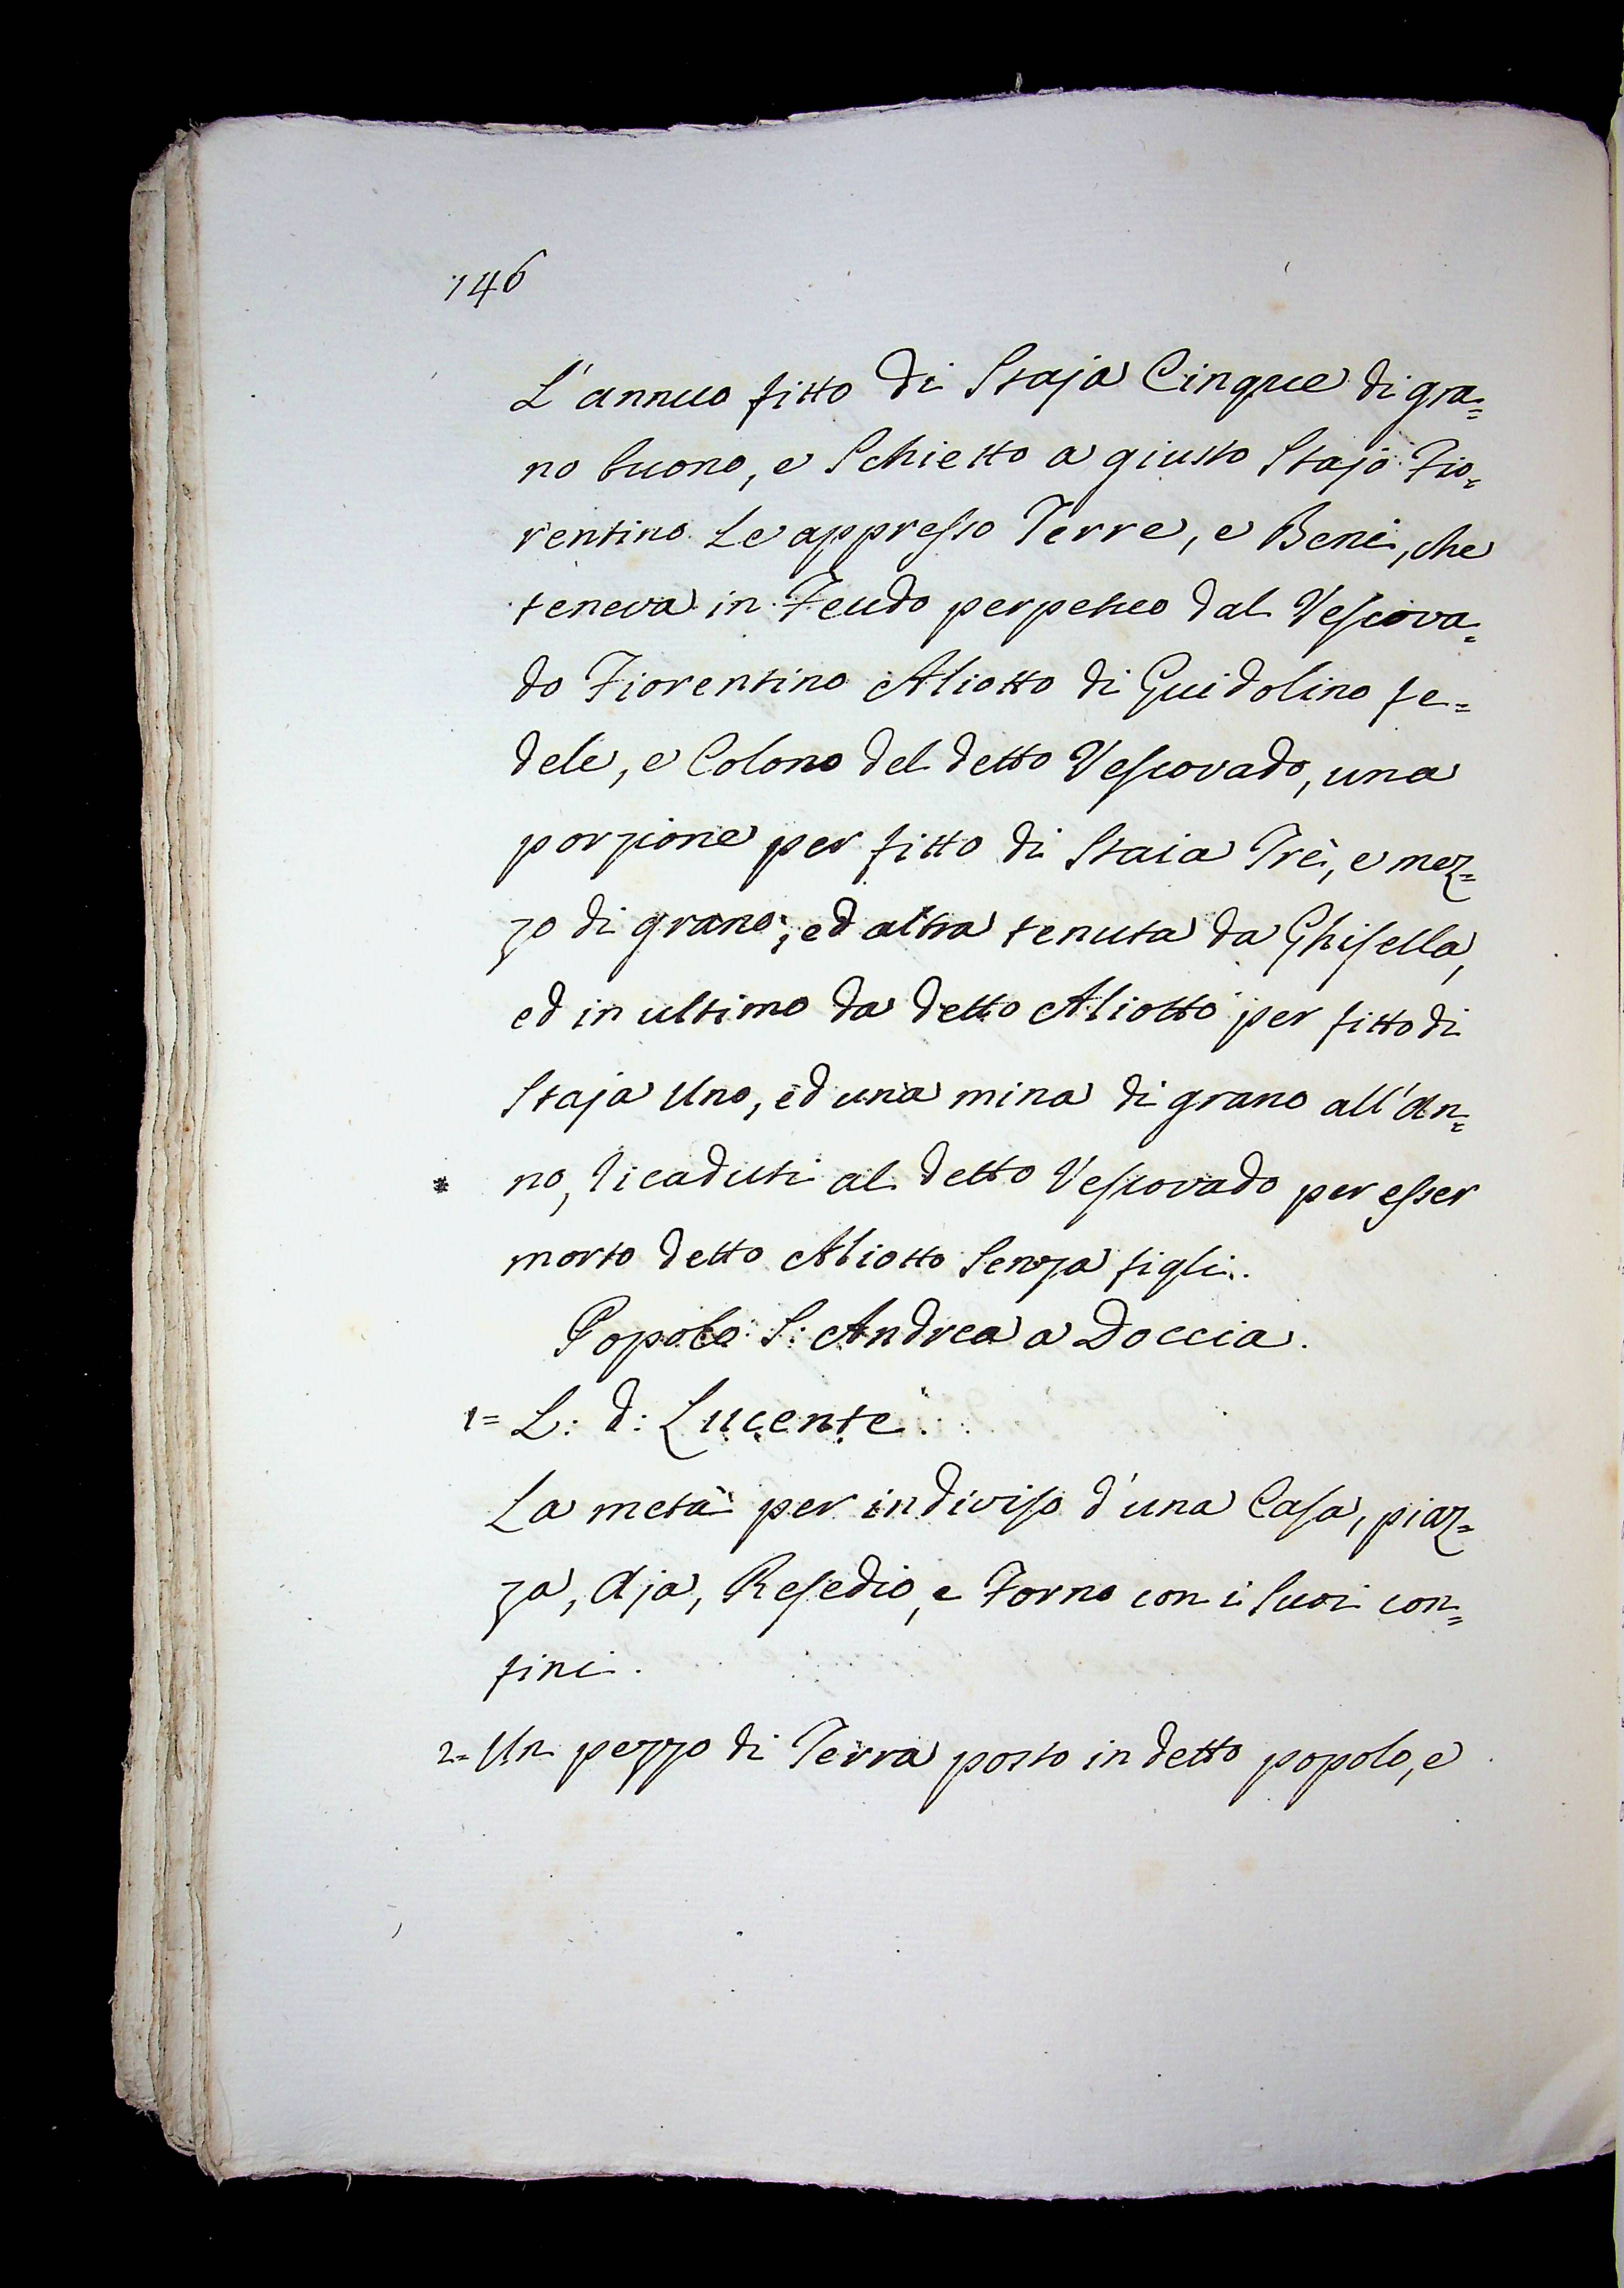 146
L'annuo fitto di Staja Cinque di gra=
no buono, e Schietto a giusto Stajo Fio=
rentino Le appresso Terre, e Beni, che
teneva in Feudo perpetuo dal Vescova=
do Fiorentino Aliotto di Guidolino fe=
dele, e Colono del detto Vescovado, una
porzione per fitto di Staia Trè, e mez=
zo di grano, ed altra tenuta da Ghisella,
ed in ultimo da detto Aliotto per fitto di
Staja Uno, ed una mina di grano all'An=
* no, ricaduti al detto Vescovado per esser
morto detto Aliotto Senza figli.
Popolo S: Andrea a Doccia.
1= L: d: Lucente.
La metà per indiviso d'una Casa, piaz=
za, Aja, Resedio, e Forno con i Suoi con=
fini.
2= Un pezzo di Terra posto in detto popolo, e